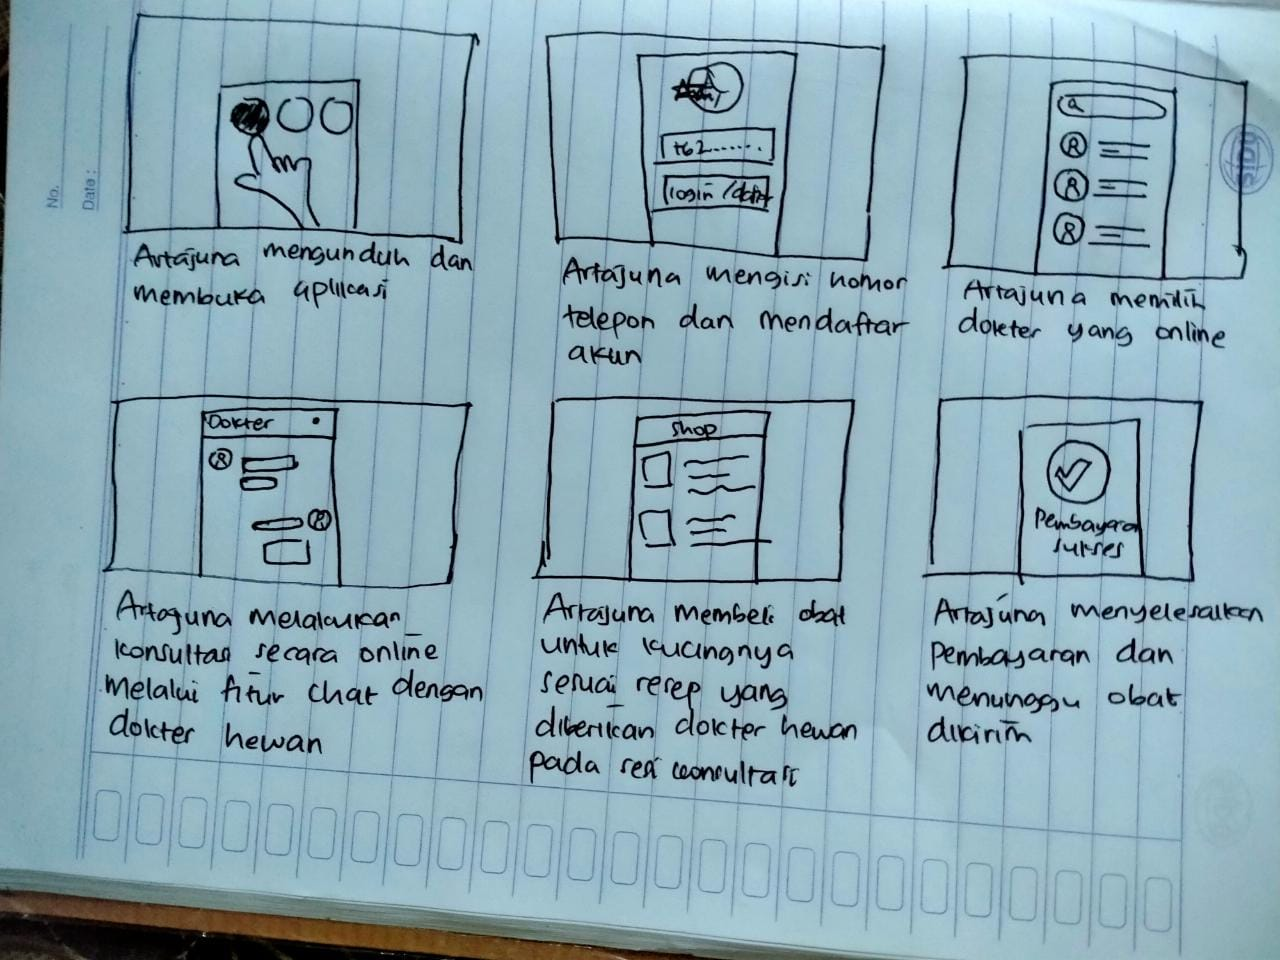 No.
Date :
SIDU
Artajuna mengunduh dan
membuka aplikasi
+62.......
login / daftar
Artajuna mengisi nomor
telepon dan mendaftar
akun
Artajuna memilih
dokter yang online
Dokter
Artajuna melakukan
konsultasi secara online
melalui fitur chat dengan
dokter hewan
shop
Artajuna membeli obat
untuk kucingnya
sesuai resep yang
diberikan dokter hewan
pada sesi konsultasi
Pembayaran
sukses
Artajuna menyelesaikan
pembayaran dan
menunggu obat
dikirim